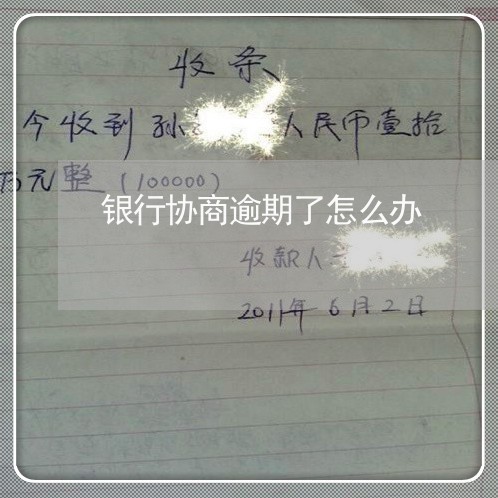 收条
今收到孙 人民币壹拾
万元整（100000）
银行协商逾期了怎么办
收款人
2011年6月2日